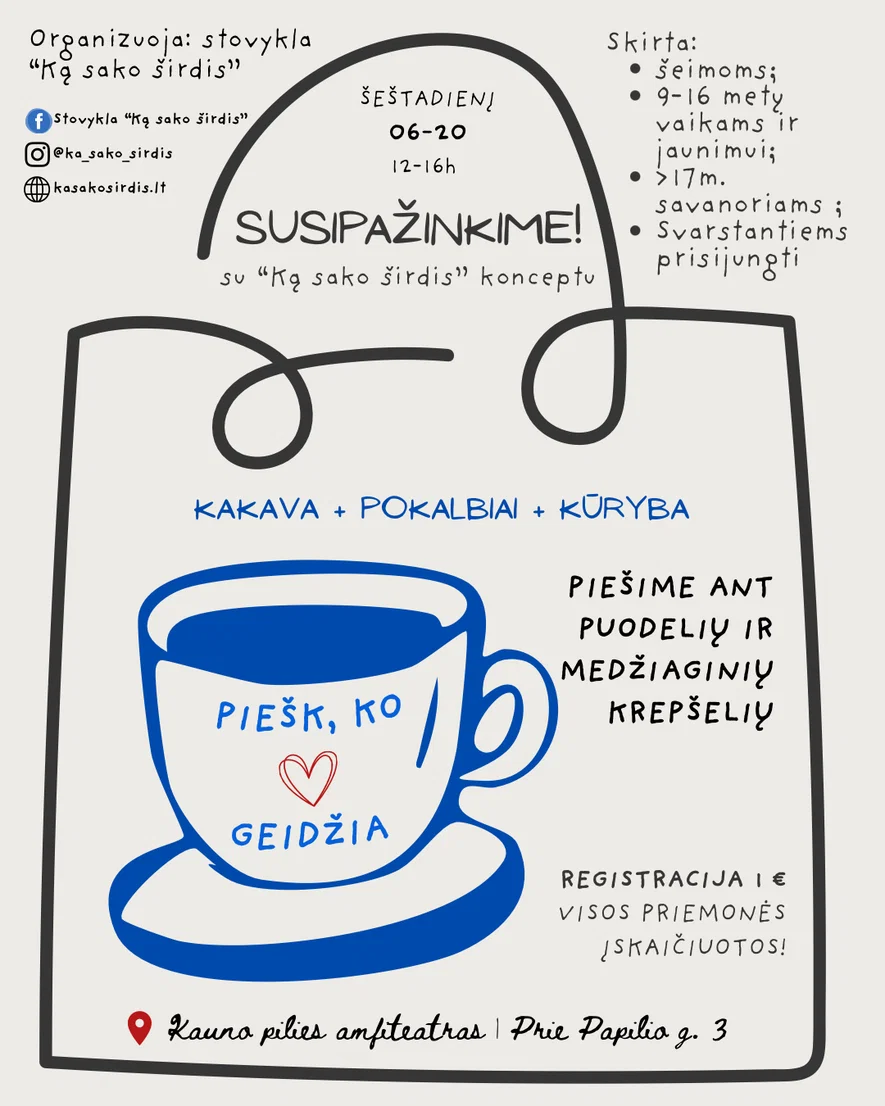 Organizuoja: stovykla
“Ką sako širdis”
Stovykla “Ką sako širdis”
@ka_sako_sirdis
kasakosirdis.lt
ŠEŠTADIENĮ
06-20
12-16h
SUSIPAŽINKIME!
su “Ką sako širdis” konceptu
Skirta:
• šeimoms;
• 9-16 metų
vaikams ir
jaunimui;
• >17m.
savanoriams ;
• Svarstantiems
prisijungti
KAKAVA + POKALBIAI + KŪRYBA
PIEŠIME ANT
PUODELIŲ IR
MEDŽIAGINIŲ
KREPŠELIŲ
PIEŠK, KO
GEIDŽIA
REGISTRACIJA 1 €
VISOS PRIEMONĖS
ĮSKAIČIUOTOS!
Kauno pilies amfiteatras | Prie Papilio g. 3